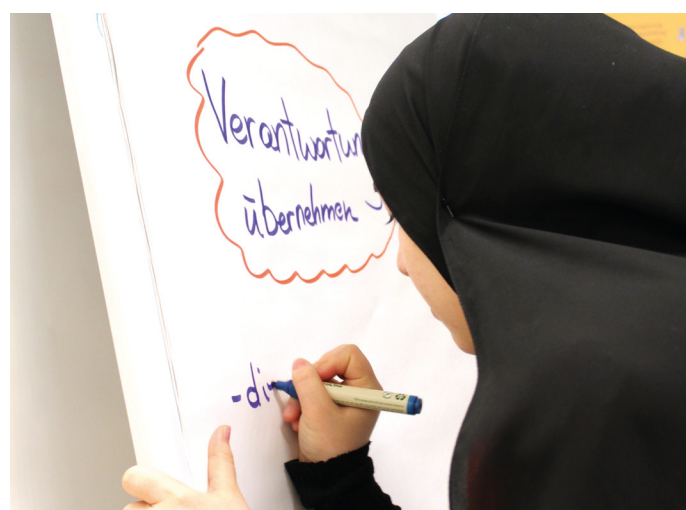 Verantwortun
übernehmen
-di